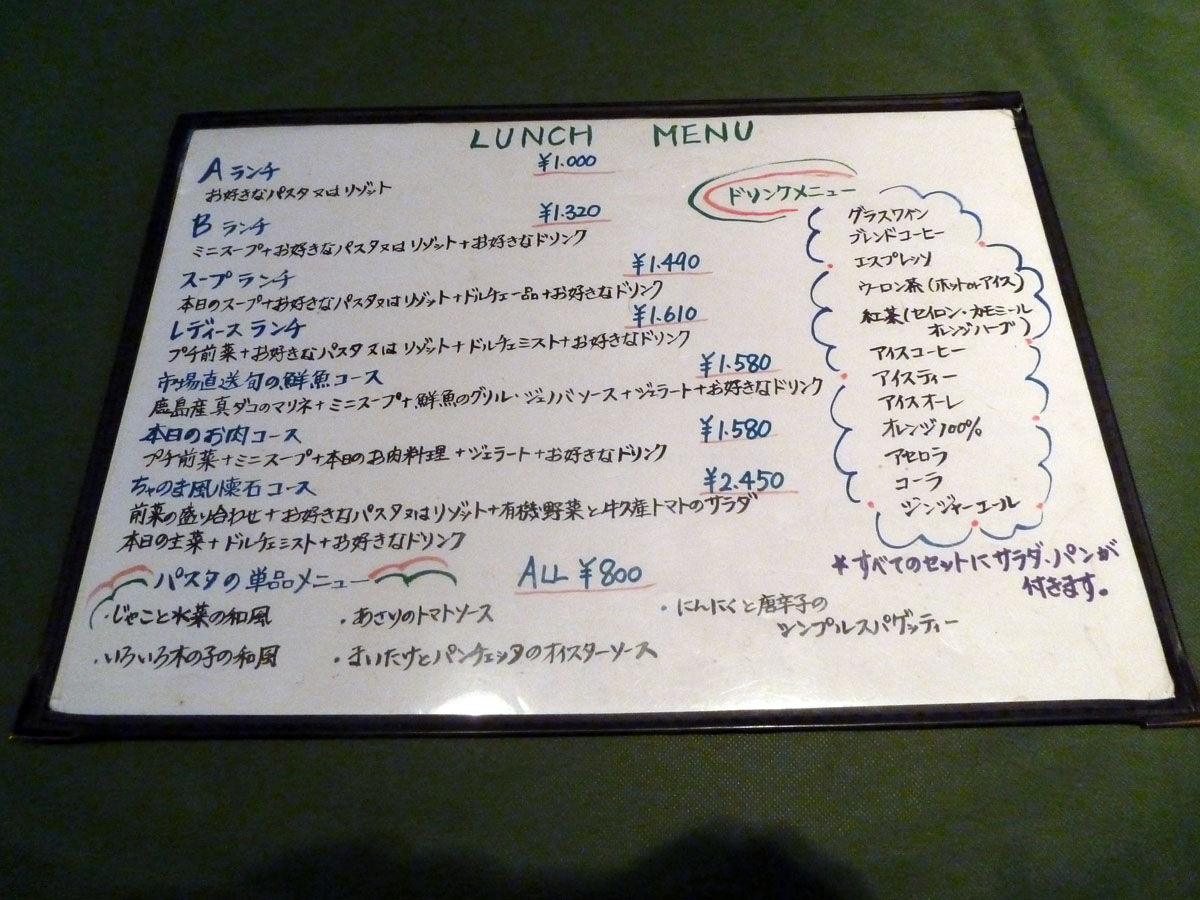 LUNCH MENU
Aランチ ¥1.000
お好きなパスタ又はリゾット
Bランチ ¥1.320
ミニスープ+お好きなパスタ又はリゾット+お好きなドリンク
スープランチ ¥1.490
本日のスープ+お好きなパスタ又はリゾット+ドルチェ一品+お好きなドリンク
レディースランチ ¥1.610
プチ前菜+お好きなパスタ又はリゾット+ドルチェミスト+お好きなドリンク
市場直送旬の鮮魚コース ¥1.580
鹿島産真ダコのマリネ+ミニスープ+鮮魚のグリル・ジェノバソース+ジェラート+お好きなドリンク
本日のお肉コース ¥1.580
プチ前菜+ミニスープ+本日のお肉料理+ジェラート+お好きなドリンク
ちゃのま風懐石コース ¥2.450
前菜の盛り合わせ+お好きなパスタ又はリゾット+有機野菜と牛久産トマトのサラダ
本日の主菜+ドルチェミスト+お好きなドリンク
ドリンクメニュー
グラスワイン
ブレンドコーヒー
エスプレッソ
ウーロン茶(ホットorアイス)
紅茶(セイロン・カモミール
オレンジハーブ)
アイスコーヒー
アイスティー
アイスオーレ
オレンジ100%
アセロラ
コーラ
ジンジャーエール
*すべてのセットにサラダ、パンが
付きます。
パスタの単品メニュー ALL ¥800
・じゃこと水菜の和風 ・あさりのトマトソース ・にんにくと唐辛子の
シンプルスパゲッティー
・いろいろ木の子の和風 ・まいたけとパンチェッタのオイスターソース